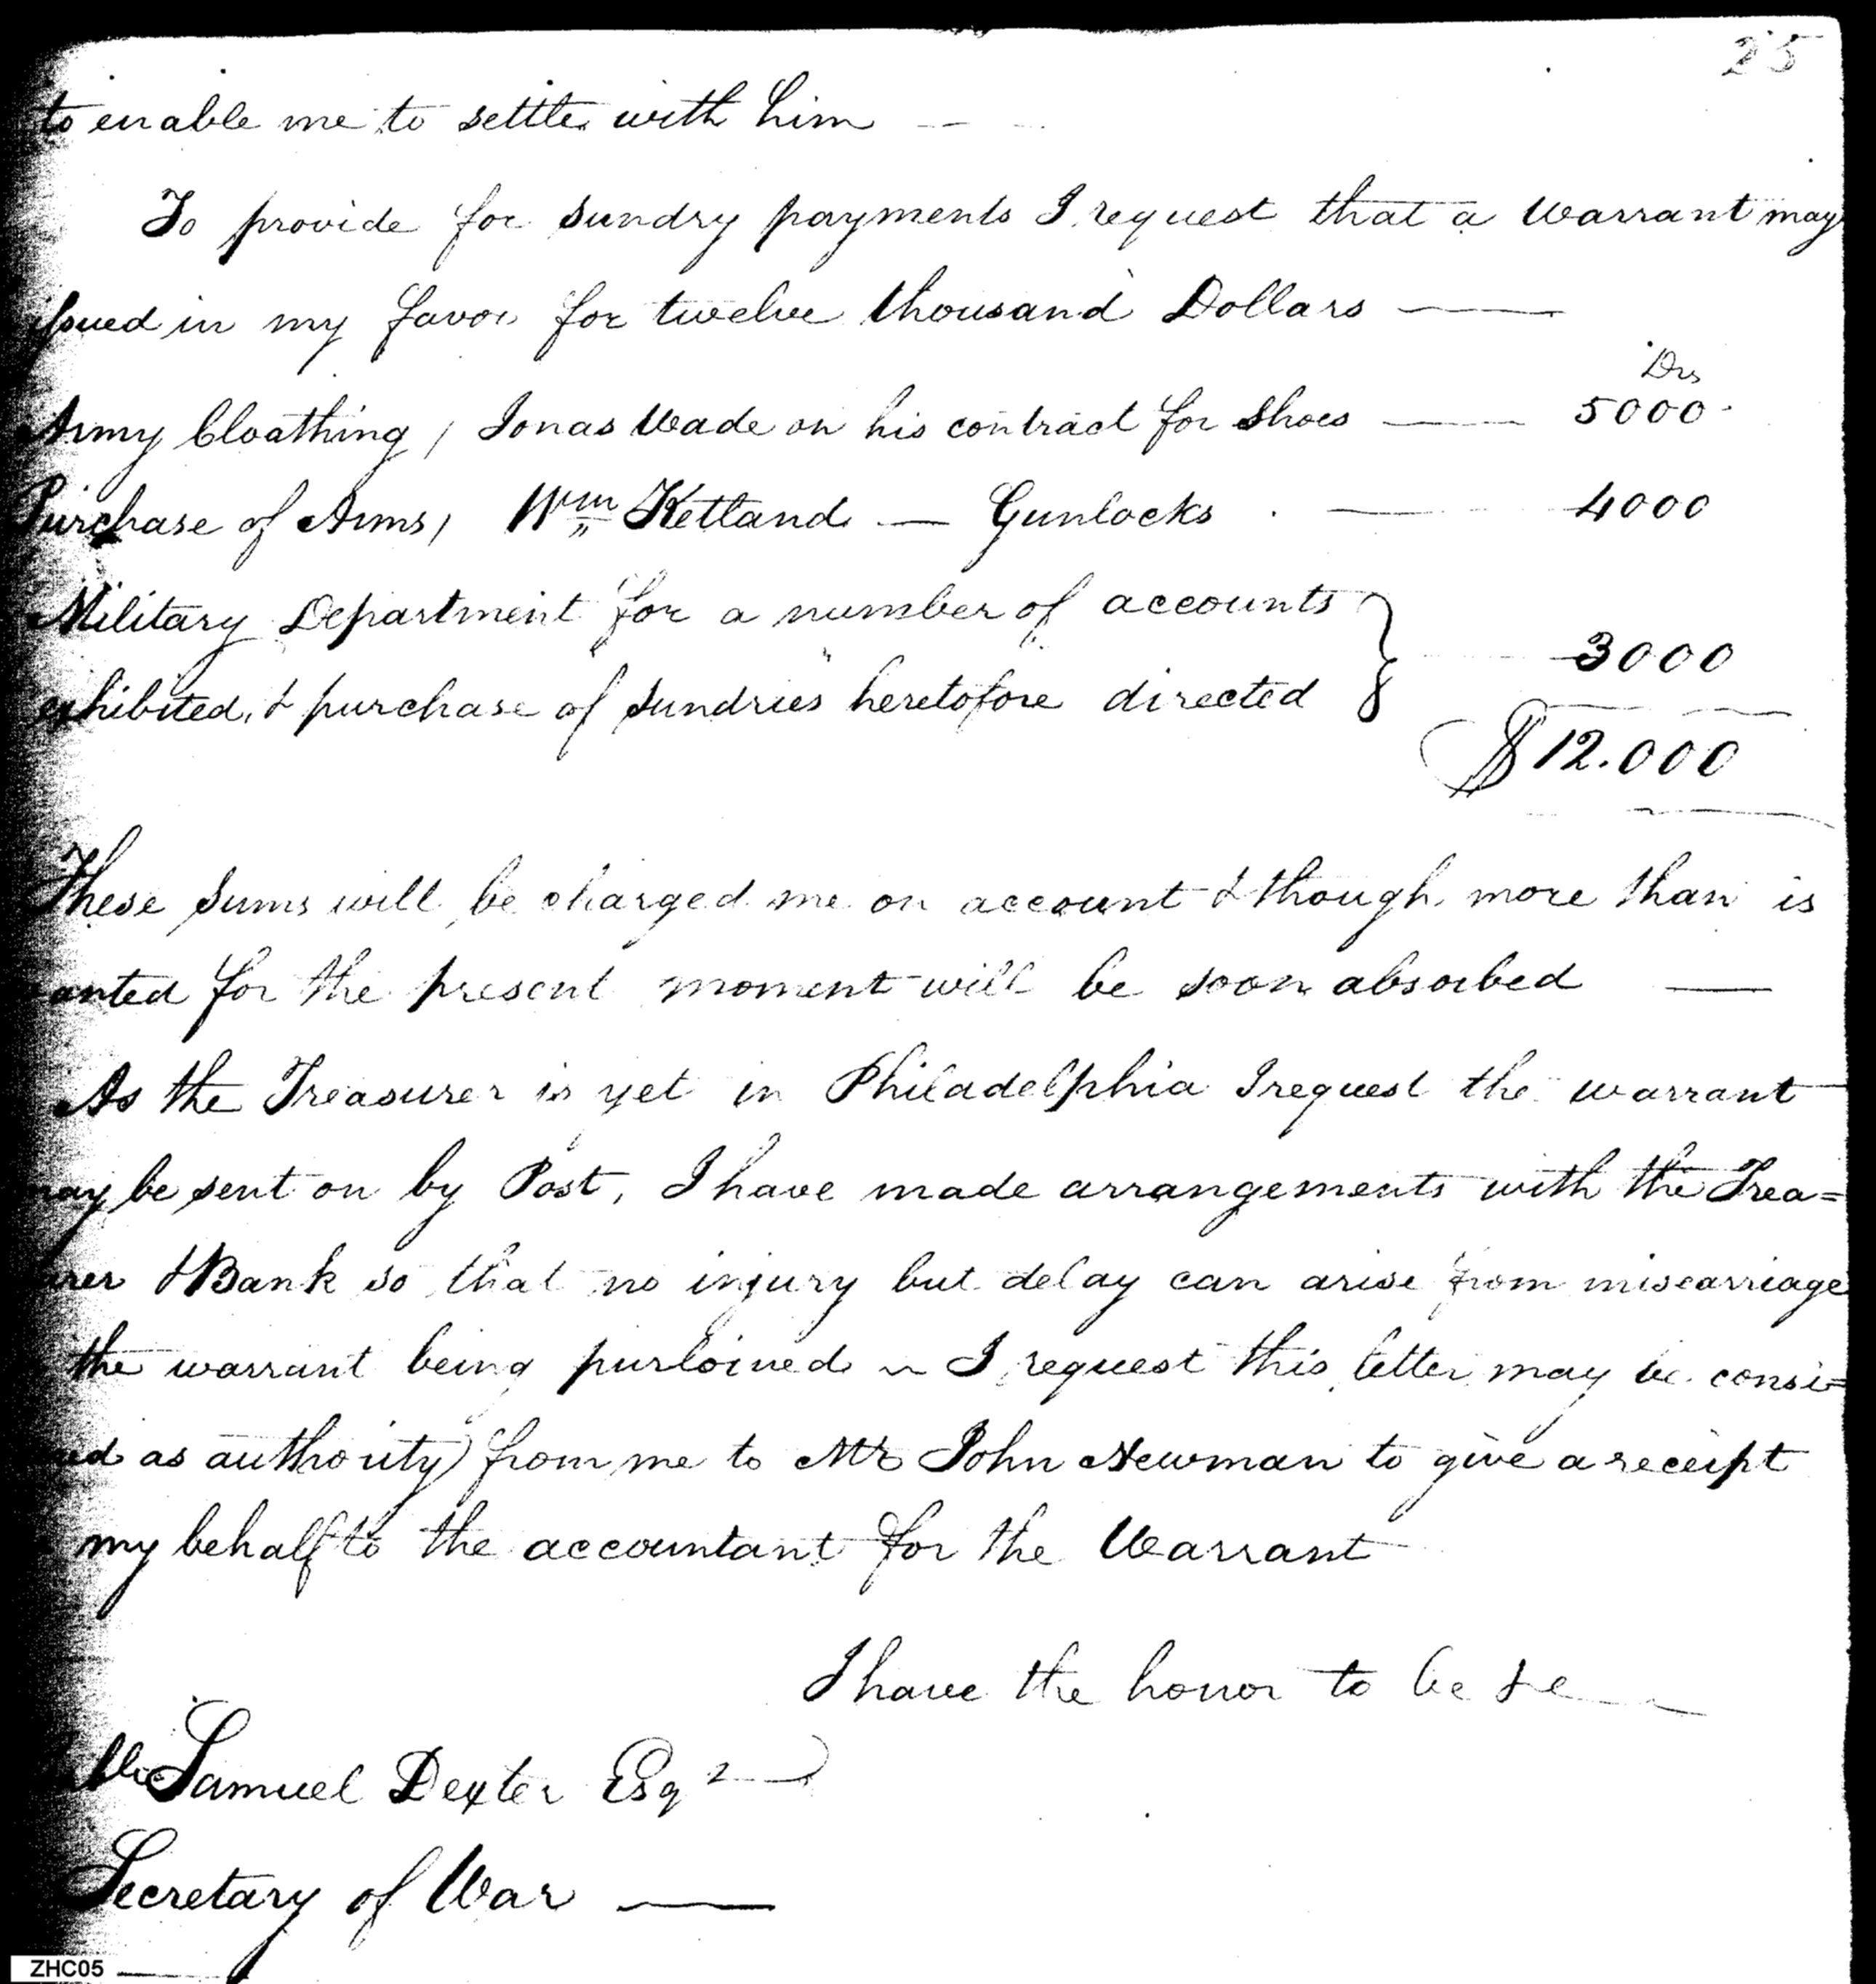 25
to enable me to settle with him — -
To provide for sundry payments I request that a Warrant may
issued in my favor for twelve thousand Dollars ——
Drs
Army Cloathing, Jonas Wade on his contract for Shoes —— 5000
Purchase of Arms, Wm Ketland — Gunlocks —— 4000
Military Department for a number of accounts
3000
exhibited, & purchase of sundries heretofore directed
$12.000
These sums will be charged me on account & though more than is
anted for the present moment will be soon absorbed ——
As the Treasurer is yet in Philadelphia I request the warrant
may be sent on by Post, I have made arrangements with the Trea=
urer & Bank so that no injury but delay can arise from miscarriage
the warrant being purloined ~ I request this letter may be consi=
red as authority from me to Mr John Newman to give a receipt
my behalf to the accountant for the Warrant
I have the honor to be &c
Samuel Dexter Esqr
Secretary of War ——
ZHC05